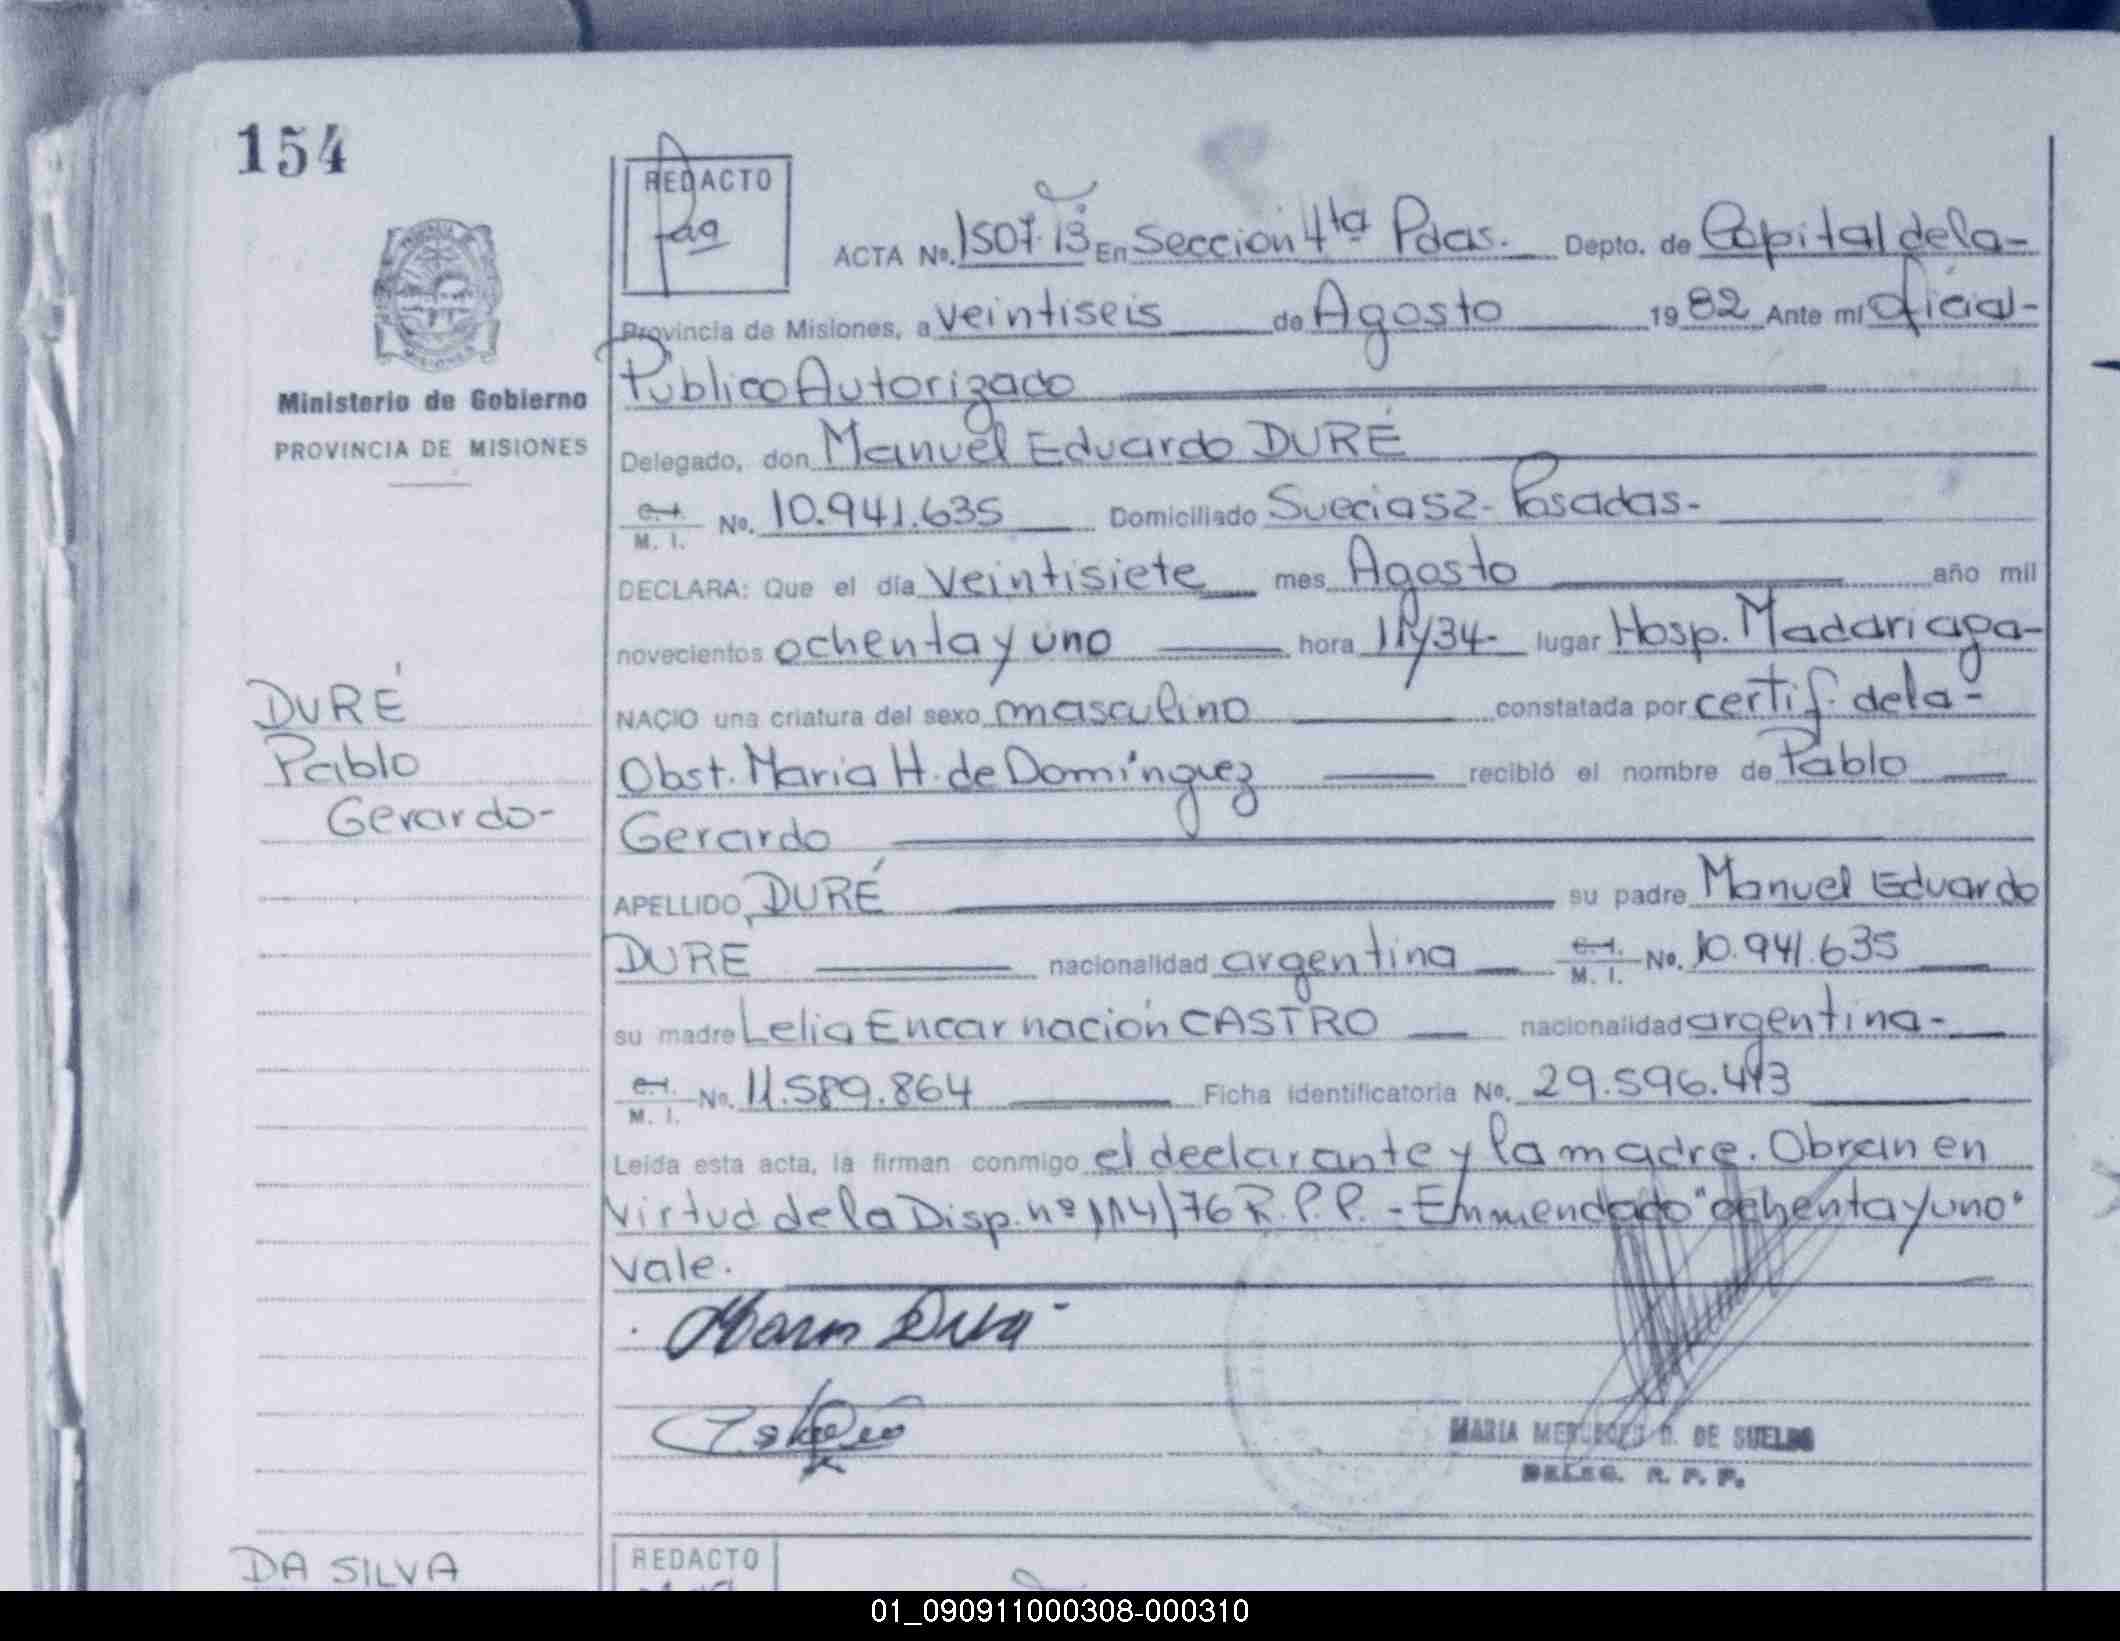 154
REDACTO
ACTA No. 1507. T3 En Seccion 4ta Pdas. Depto. de Capital de la-
Provincia de Misiones, a veintiseis de Agosto 1982 Ante mi Oficial-
Publico Autorizado
Ministerio de Gobierno
PROVINCIA DE MISIONES
Delegado, don Manuel Eduardo DURÉ
C.I. M. I. No. 10.941.635 Domiciliado Suecia 52- Posadas-
DECLARA: Que el día veintisiete mes Agosto año mil
novecientos ochenta y uno hora lugar Hosp. Madariaga-
NACIO una criatura del sexo masculino constatada por certif. de la-
Obst. Maria H. de Domínguez recibió el nombre de Pablo
Gerardo
DURÉ
Pablo
Gerardo-
APELLIDO, DURÉ su padre Manuel Eduardo
DURE nacionalidad argentina C.I. M. I. No. 10.941.635
su madre Lelia Encarnación CASTRO nacionalidad argentina-
C.I. M. I. No. 11.589.864 Ficha identificatoria No. 29.596.413
Leída esta acta, la firman conmigo el declarante y la madre. Obran en
virtud de la Disp. nº 114/76 R.P.P. - Enmendado "ochenta y uno"
vale.
MARIA MERCEDES D. DE SUELDO
DELEG. R. P. P.
DA SILVA
REDACTO
01_090911000308-000310